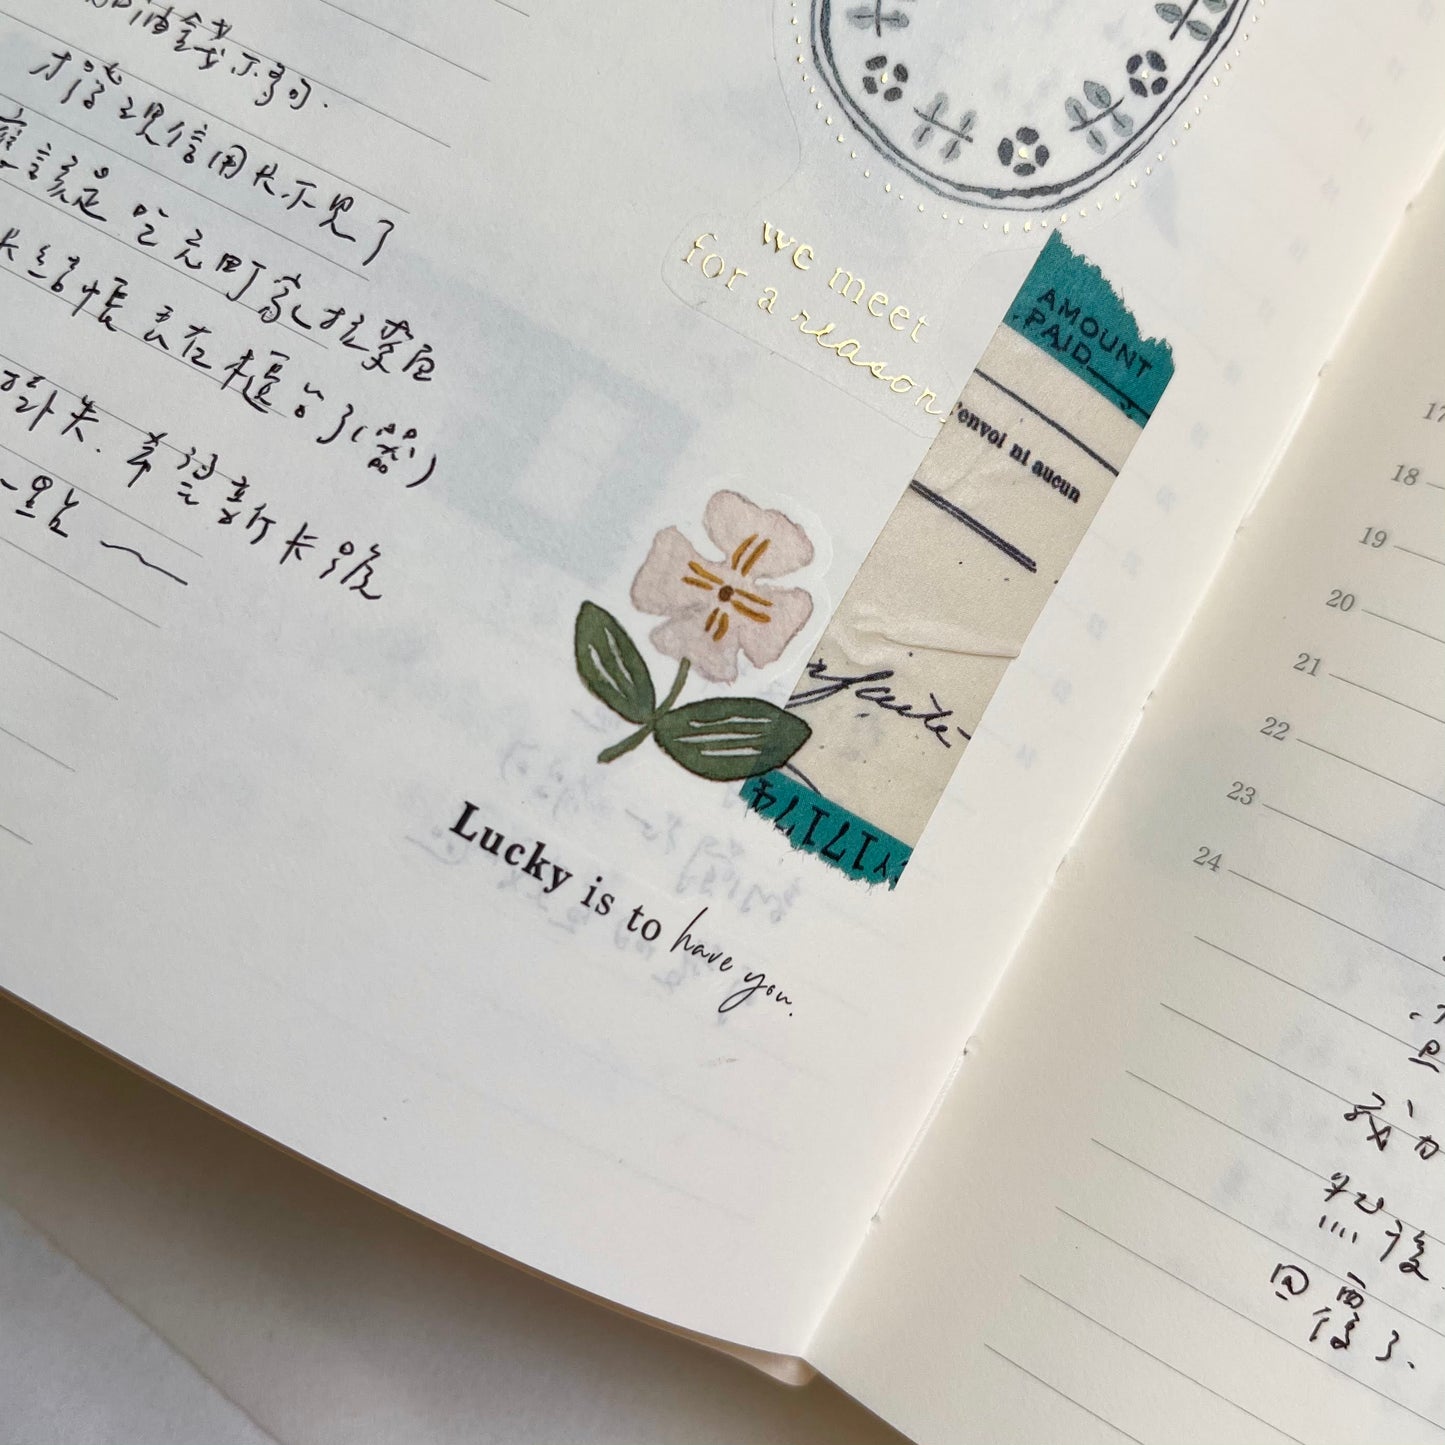 油錢不夠.
才發現信用卡不見了
應該是吃完町家拉麵后
卡結帳丟在櫃台了(哭)
卡. 希望新卡號
一點～
we meet
for a reason
AMOUNT
PAID
l'envoi ni aucun
Lucky is to have you.
17
18
19
20
21
22
23
24
然後
回覆了.